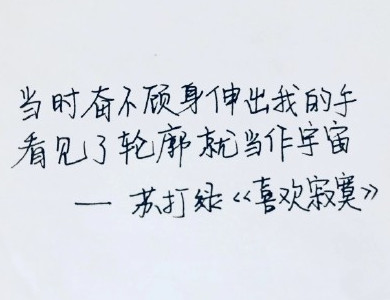 当时奋不顾身伸出我的手
看见了轮廓就当作宇宙
— 苏打绿《喜欢寂寞》